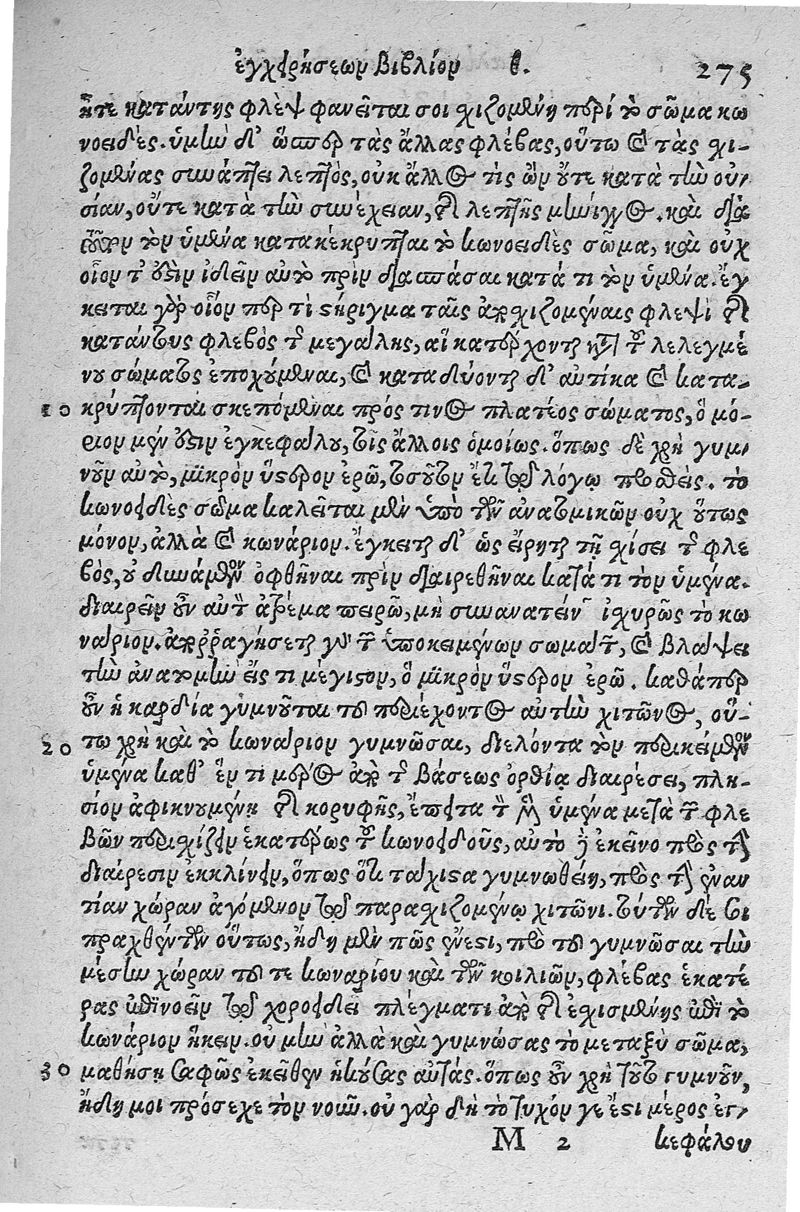 ἐγχειρήσεωμ Βιβλίομ θ. 275
ἥτε κατάντης φλὲψ φανεῖται σοι σχιζομένη περὶ τὸ σῶμα κω
νοειδές. ὑμὴν δ' ὥσπερ τὰς ἄλλας φλέβας, οὕτω καὶ τὰς σχι-
ζομένας συνάπτει λεπτὸς, οὐκ ἄλλος τὶς ὢν οὔτε κατὰ τὴν οὐ-
σίαν, οὔτε κατὰ τὴν συνέχειαν, τῆς λεπτῆς μήνιγγος. καὶ διὰ
τοῦτον τὸν ὑμένα κατακέκρυπται τὸ κωνοειδὲς σῶμα, καὶ οὐχ
οἷον τ' ἐστὶν ἰδεῖν αὐτὸ πρὶν διασπάσαι κατά τι τὸν ὑμένα. ἔγ
κειται γὰρ οἷον περ τὶ στήριγμα ταῖς ἀποσχιζομέναις φλεψὶ τῆς
κατάντους φλεβὸς τῆς μεγάλης, αἳ κατέρχονται κατὰ τοῦ λελεγμέ
νου σώματος ἐποχούμεναι, καὶ καταδύονται δ' αὐτίκα καὶ κατα-
10 κρύπτονται σκεπόμεναι πρός τινος πλατέος σώματος, ὃ μό-
ριον μέν ἐστιν ἐγκεφάλου, τοῖς ἄλλοις ὁμοίως. ὅπως δὲ χρὴ γυμ-
νοῦν αὐτὸ, μικρὸν ὕστερον ἐρῶ, τοσοῦτον ἔτι τῷ λόγῳ προσθείς. τὸ
κωνοειδὲς σῶμα καλεῖται μὲν ὑπὸ τῶν ἀνατομικῶν οὐχ οὕτως
μόνον, ἀλλὰ καὶ κωνάριον. ἔγκειται δ' ὡς εἴρηται τῇ σχίσει τῆς φλε
βός, οὐ δυνάμενον ὀφθῆναι πρὶν διαιρεθῆναι κατά τι τὸν ὑμένα.
διαιρεῖν οὖν αὐτὸν ἀτρέμα πειρῶ, μὴ συνανατείνων ἰσχυρῶς τὸ κω
νάριον. ἀπορραγήσεται γὰρ τῶν ὑποκειμένων σωμάτων, καὶ βλάψει
τὴν ἀνατομὴν εἴς τι μέγιστον, ὃ μικρὸν ὕστερον ἐρῶ. καθάπερ
οὖν ἡ καρδία γυμνοῦται τοῦ περιέχοντος αὐτὴν χιτῶνος, οὕ-
20 τω χρὴ καὶ τὸ κωνάριον γυμνῶσαι, διελόντα τὸν περικείμενον
ὑμένα καθ' ἕν τι μέρος ἀπὸ τῆς βάσεως ὀρθίᾳ διαιρέσει, πλη-
σίον ἀφικνουμένῃ τῆς κορυφῆς, ἔπειτα τὸν μὲν ὑμένα μετὰ τῶν φλε
βῶν περισχίζειν ἑκατέρως τοῦ κωνοειδοῦς, αὐτὸ δὲ ἐκεῖνο πρὸς τὴν
διαίρεσιν ἐκκλίνειν, ὅπως ὅτι τάχιστα γυμνωθείη, πρὸς τὴν ἐναν
τίαν χώραν ἀγόμενον τῷ παρασχιζομένῳ χιτῶνι. τούτων δέ σοι
πραχθέντων οὕτως, ἤδη μὲν πῶς ἔνεστι, πρὸ τοῦ γυμνῶσαι τὴν
μέσην χώραν τοῦ τε κωναρίου καὶ τῶν κοιλιῶν, φλέβας ἑκατέ
ρας ἐπινοεῖν τῷ χοροειδεῖ πλέγματι ἀπὸ τῆς ἐσχισμένης ἐπὶ τὸ
κωνάριον ἥκειν. οὐ μὴν ἀλλὰ καὶ γυμνώσας τὸ μεταξὺ σῶμα,
30 μαθήσῃ σαφῶς ἐκεῖθεν ἡκούσας αὐτάς. ὅπως οὖν χρὴ τοῦτο γυμνοῦν,
ἤδη μοι πρόσεχε τὸν νοῦν. οὐ γὰρ δὴ τὸ τυχόν γε ἐστὶ μέρος ἐγ-
M 2 κεφάλου